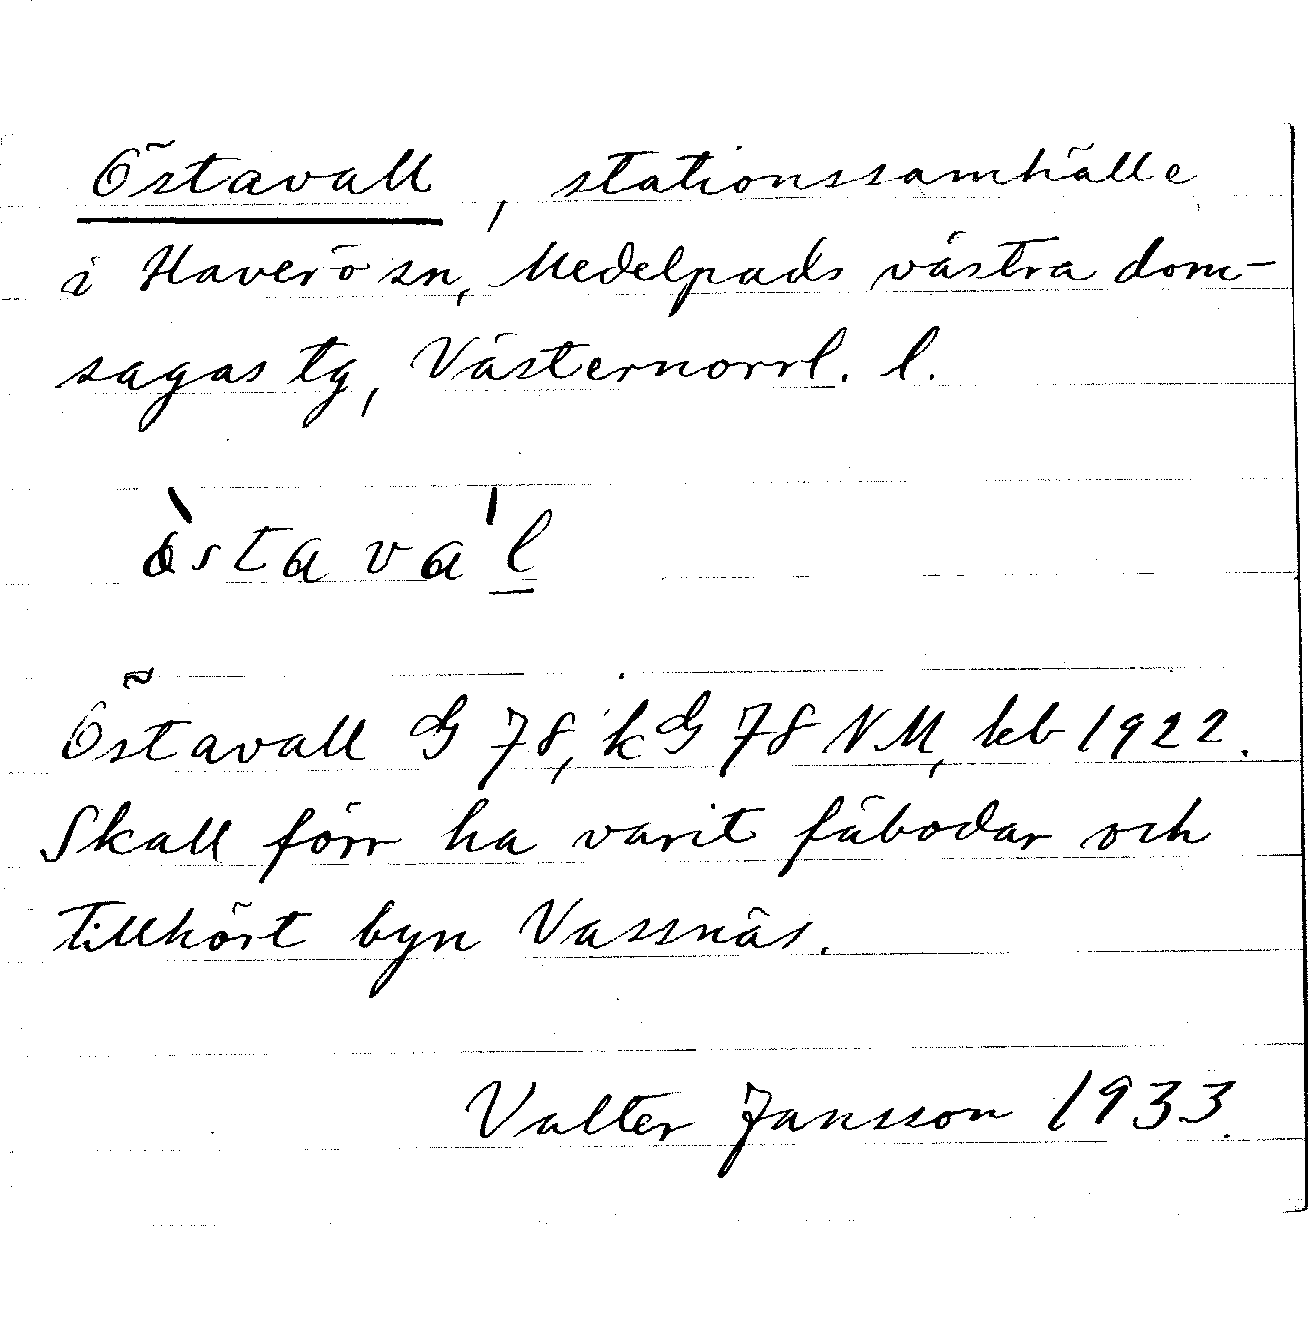 Östavall, stationssamhälle
i Haverö sn, Medelpads västra dom-
sagas tg, Västernorrl. l.
östava'l
Östavall G 78, kG 78 NM, kb 1922.
Skall förr ha varit fäbodar och
tillhört byn Vassnäs.
Valter Jansson 1933.